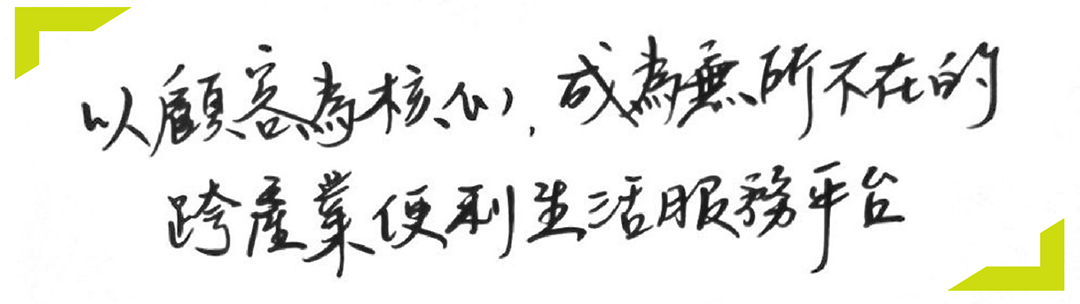 以顧客為核心,成為無所不在的
跨產業便利生活服務平台